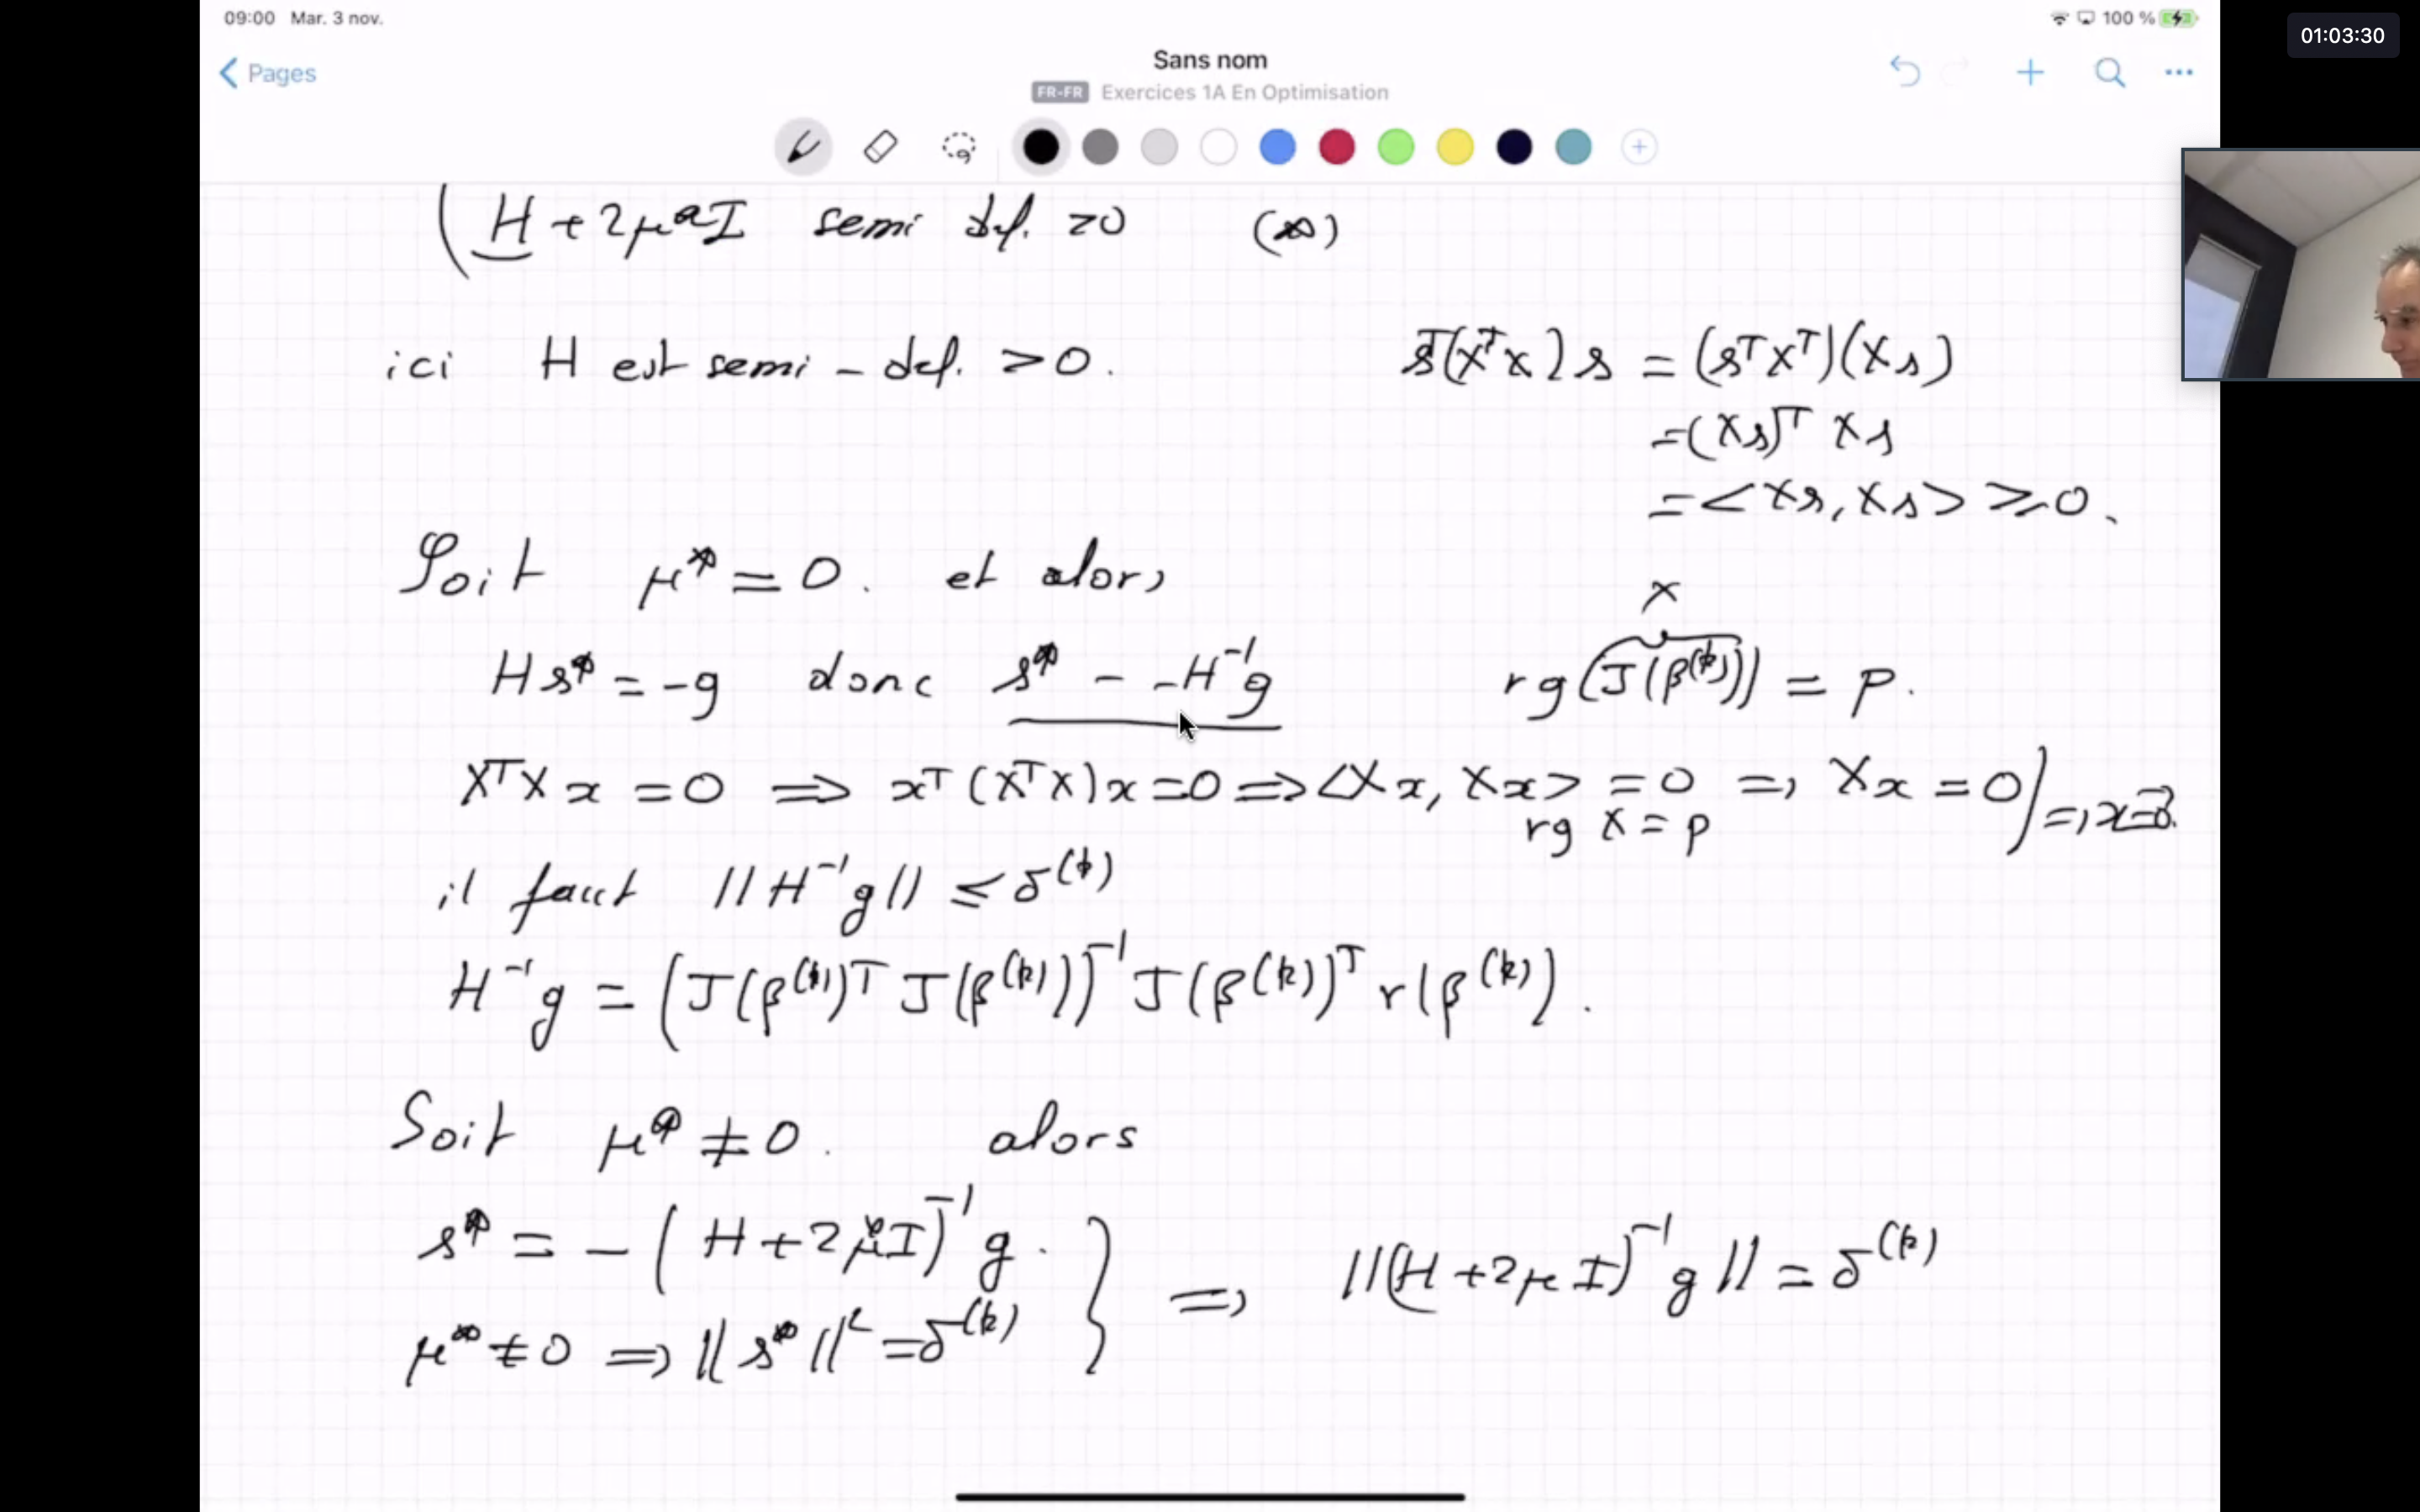 09:00 Mar. 3 nov.
100 %
01:03:30
Pages
Sans nom
FR-FR Exercices 1A En Optimisation
( H + 2μ*I semi def. >0 (∞)
ici H est semi-def. >0.
sᵀ(XᵀX)s = (sᵀXᵀ)(Xs)
=(Xs)ᵀ Xs
=<Xs, Xs> ≥0.
Soit μ* = 0. et alors
X
Hs* = -g donc s* - -H⁻¹g
rg(J(β⁽ᵏ⁾)) = p.
XᵀX x = 0 ⟹ xᵀ(XᵀX)x = 0 ⟹ <Xx, Xx> = 0 ⟹ Xx = 0) ⟹ x=0.
rg X = p
il faut ||H⁻¹g|| ≤ δ⁽ᵏ⁾
H⁻¹g = (J(β⁽ᵏ⁾)ᵀ J(β⁽ᵏ⁾))⁻¹ J(β⁽ᵏ⁾)ᵀ r(β⁽ᵏ⁾).
Soit μ* ≠ 0. alors
s* = -( H + 2μ*I)⁻¹ g. } ⟹ ||(H + 2μI)⁻¹ g|| = δ⁽ᵏ⁾
μ* ≠ 0 ⟹ || s* ||² = δ⁽ᵏ⁾